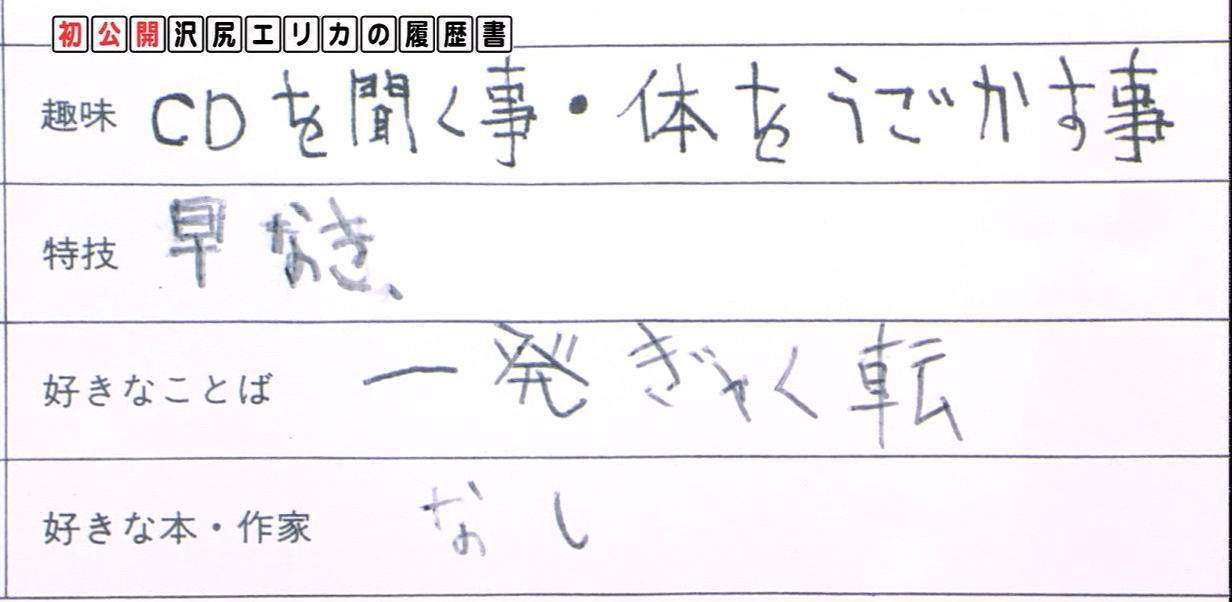 初公開沢尻エリカの履歴書
趣味 CDを聞く事・体をうごかす事
特技 早なき、
好きなことば 一発ぎゃく転
好きな本・作家 なし